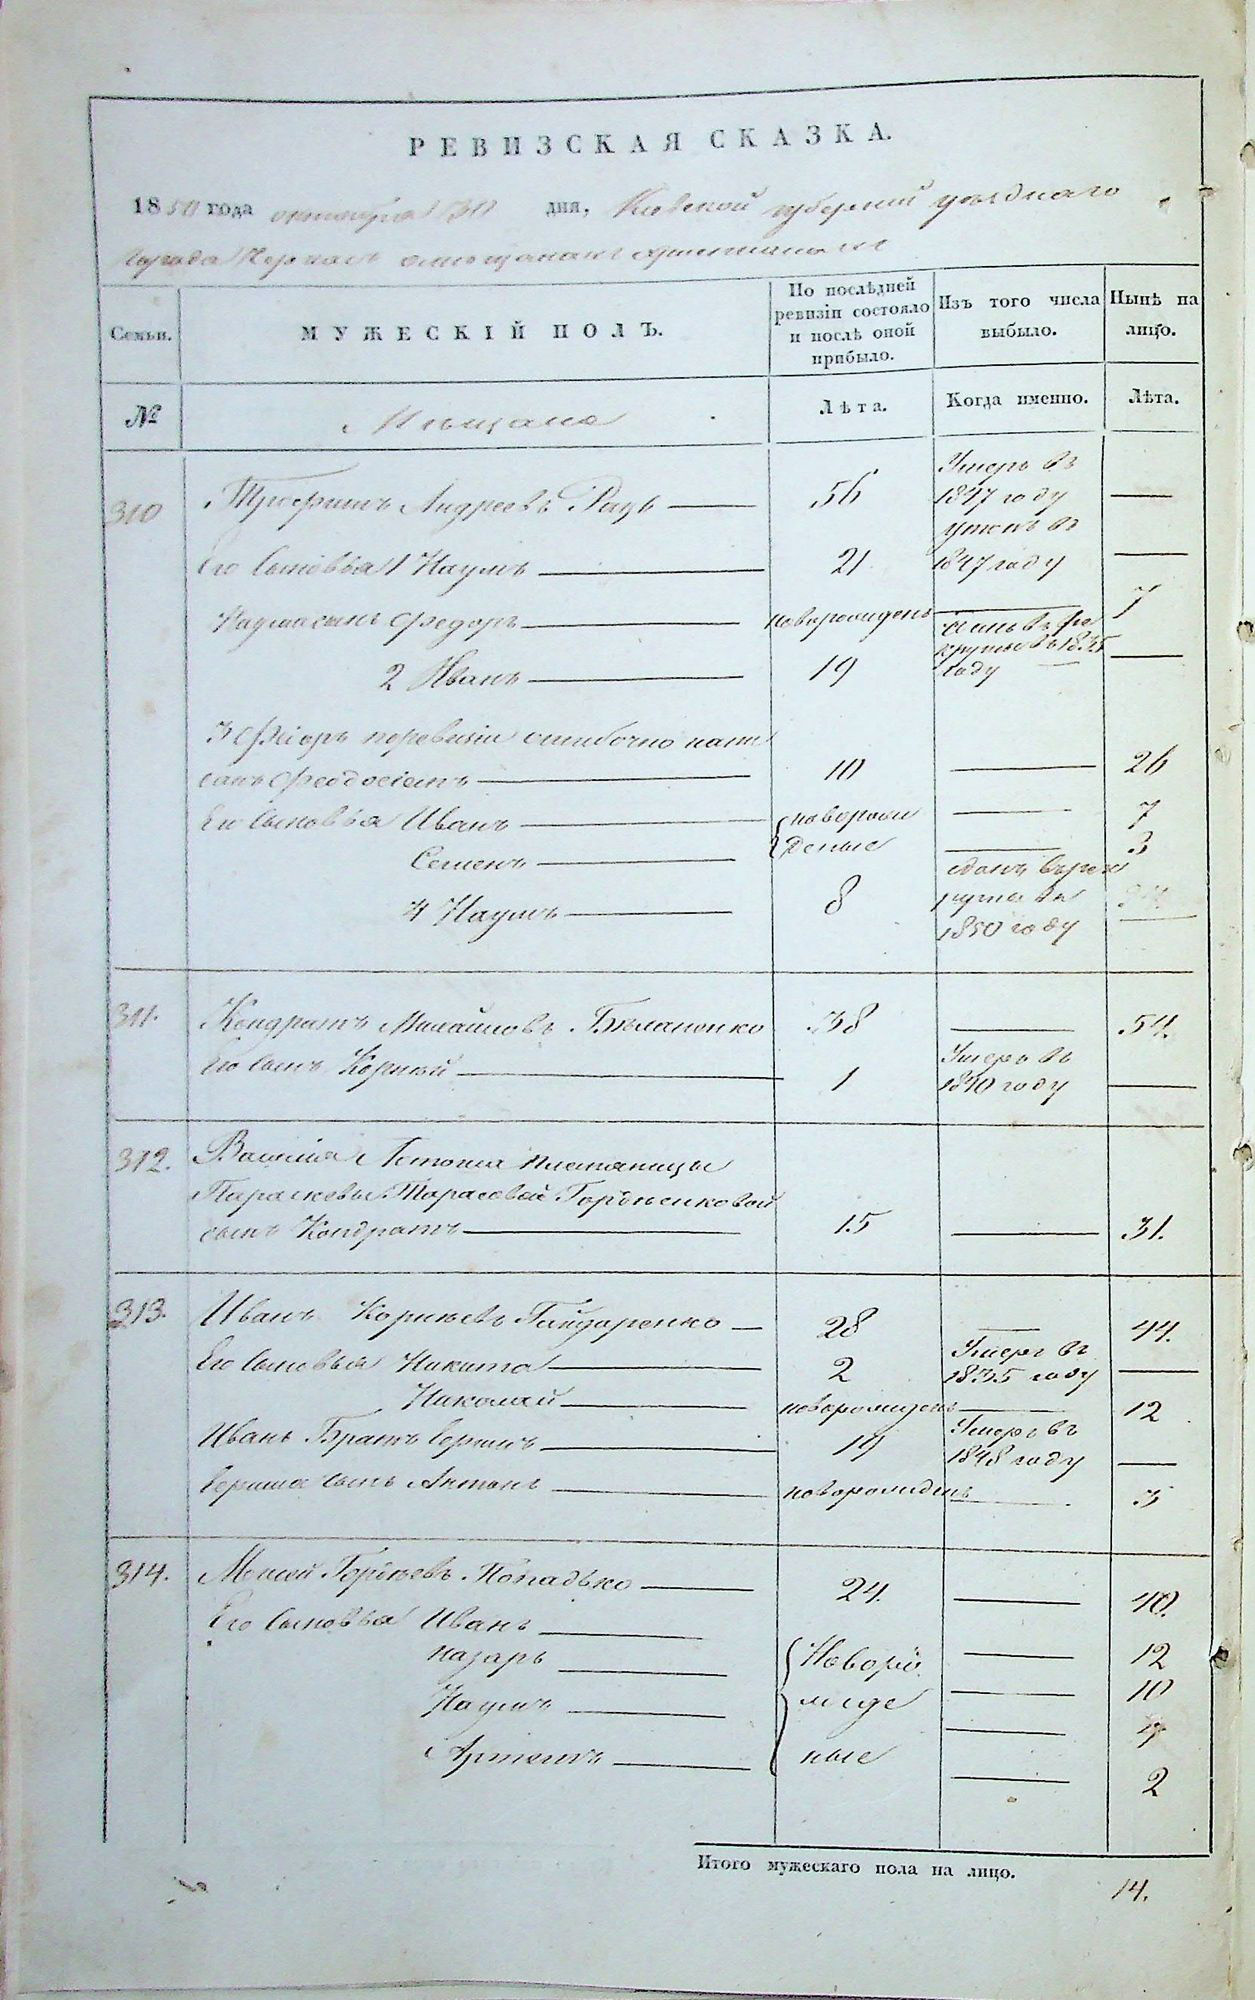 РЕВИЗСКАЯ СКАЗКА.
1850 года октября 30 дня, Киевской губернии уезднаго
города Черкас о мещанах християнах
Семьи.
МУЖЕСКІЙ ПОЛЪ.
По послѣдней ревизіи состояло и послѣ оной прибыло.
Изъ того числа выбыло.
Нынѣ на лицо.
№
Мещане
Лѣта.
Когда именно.
Лѣта.
310 Трофимъ Андреевъ 56 Умеръ въ 1847 году —
Его Сыновья 1 Наумъ 21 1847 году —
Наума сынъ Федоръ новорожденъ — 7
2 Иванъ 19 рекруты въ 1835 году —
3 Федоръ по ревизіи ошибочно напи
санъ Феодосіемъ 10 — 26
Его Сыновья Иванъ новорож — 7
Семенъ деные — 3
4 Наумъ 8 сданъ в рек руты въ 1850 году —
311. Кондратъ Михайловъ 38 — 54.
Его Сынъ Корней 1 Умеръ въ 1840 году —
312. племяницы
Параскевы Тарасовой
сынъ Кондратъ 15 — 31.
313. Иванъ Корнѣевъ Гайдаренко — 28 — 44.
Его Сыновья Никита 2 Умеръ въ 1835 году —
Николай новорожденъ — 12
Ивана Братъ 19 Умеръ въ 1848 году —
сынъ Антонъ новорожденъ — 3
314. Гордѣевъ 24. — 40.
Его Сыновья Иванъ — 12
Назаръ Новоро — 10
Наумъ жде — 7
Артемъ ные — 2
Итого мужескаго пола на лицо.
14.